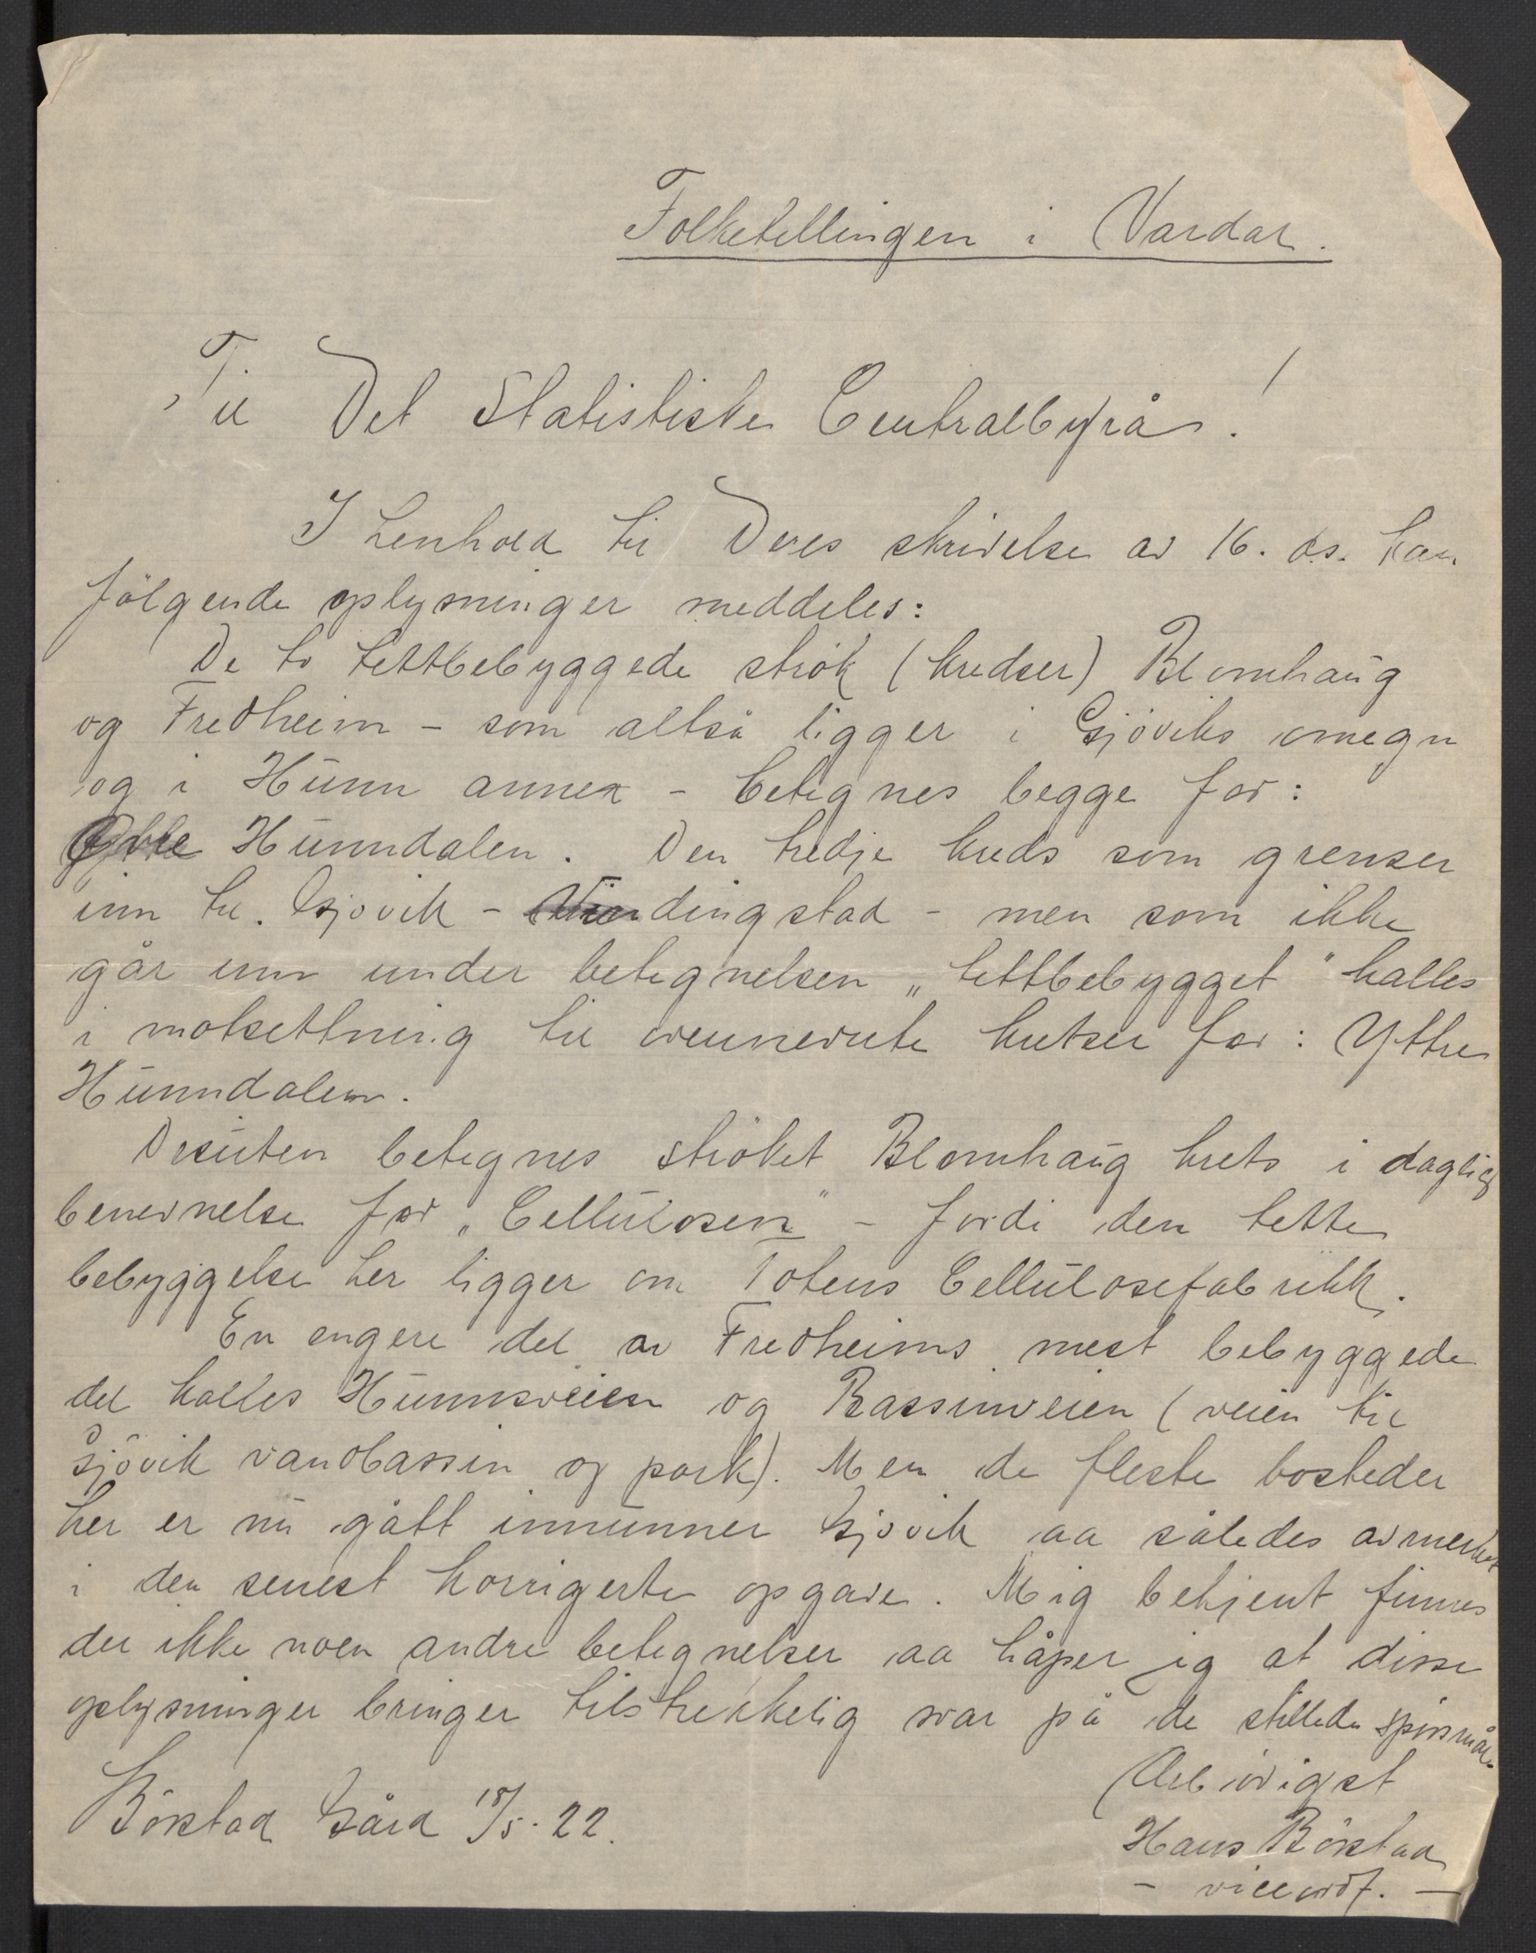 Folketellingen i Vardal.
Til Det Statistiske Centralbyrå!
I henhold til Deres skrivelse av 16. ds. kan
følgende oplysninger meddeles:
De to tettbebyggede strök (kredser) Blomhaug
og Fredheim – som altså ligger i Gjöviks omegn
og i Hunn annex – betegnes begge for:
Hunndalen. Den tredje kreds som grenser
inn til Gjövik – Vindingstad – men som ikke
går inn under betegnelsen „tettbebygget" kalles
i motsettning til ovennevnte kretser for: Yttre
Hunndalen.
Desuten betegnes ströket Blomhaug krets i daglig
benevnelse for „Cellulosen" – fordi den tette
bebyggelse her ligger om Totens Cellulosefabrikk.
En engere del av Fredheims mest bebyggede
del kalles Hunnsveien og Bassinveien (veien til
Gjövik vandbassin og park). Men de fleste bosteder
her er nu gått innunner Gjövik aa således avmerket
i den senest korrigerte opgave. Mig bekjent finnes
der ikke noen andre betegnelser aa håper jeg at disse
oplysninger bringer tilstrekkelig svar på de stillede spörsmål.
Ærbödigst
Börstad Gård 18/5-22.
Hans Börstad
– viceordf. –